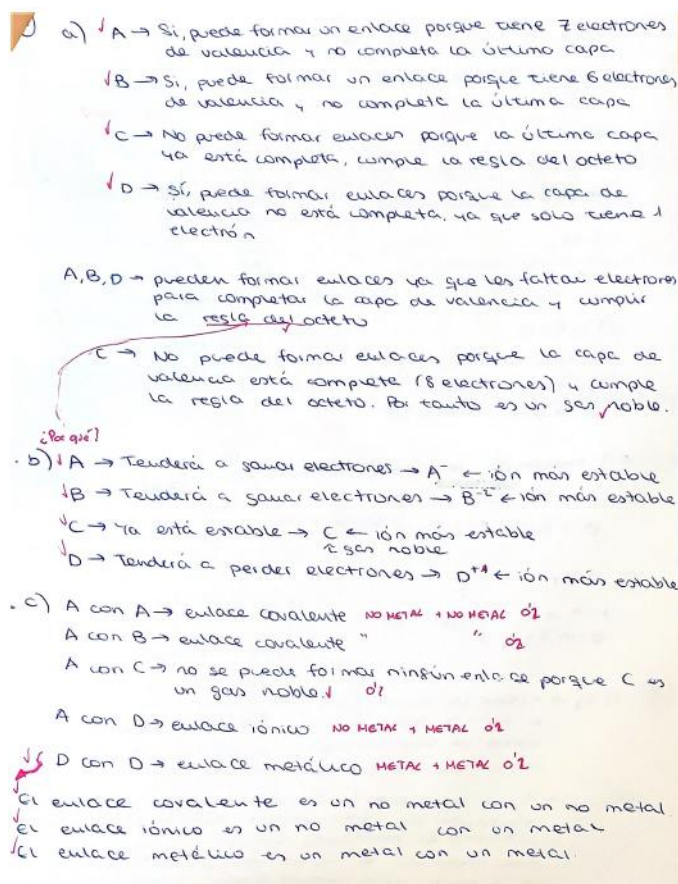 a) A → Si, puede formar un enlace porque tiene 7 electrones
de valencia y no completa la última capa
B → Si, puede formar un enlace porque tiene 6 electrones
de valencia y no completa la última capa
C → No puede formar enlaces porque la última capa
ya está completa, cumple la regla del octeto
D → Sí, puede formar enlaces porque la capa de
valencia no está completa, ya que solo tiene 1
electrón
A, B, D → pueden formar enlaces ya que les faltan electrones
para completar la capa de valencia y cumplir
la regla del octeto
C → No puede formar enlaces porque la capa de
valencia está completa (8 electrones) y cumple
la regla del octeto. Por tanto es un gas noble.
¿Por qué?
. b) A → Tenderá a ganar electrones → A⁻ ← ión más estable
B → Tenderá a ganar electrones → B⁻² ← ión más estable
C → Ya está estable → C ← ión más estable
gas noble
D → Tenderá a perder electrones → D⁺¹ ← ión más estable
. c) A con A → enlace covalente NO METAL + NO METAL 0'2
A con B → enlace covalente " " 0'2
A con C → no se puede formar ningún enlace porque C es
un gas noble. 0'2
A con D → enlace iónico NO METAL + METAL 0'2
D con D → enlace metálico METAL + METAL 0'2
El enlace covalente es un no metal con un no metal.
El enlace iónico es un no metal con un metal
El enlace metálico es un metal con un metal.